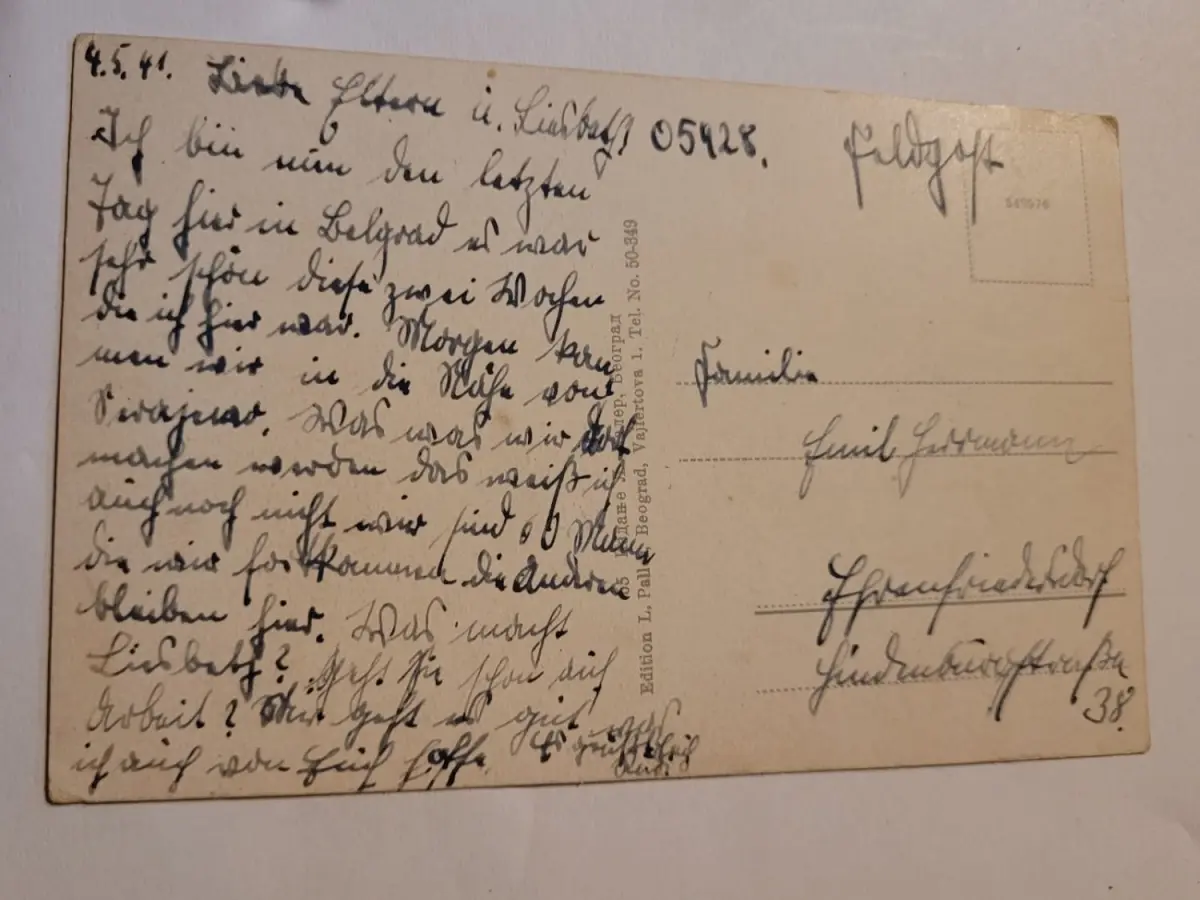 4.5.41. Liebe Eltern u. Liesbeth!
Ich bin nun den letzten
Tag hier in Belgrad es war
sehr schön diese zwei Wochen
die ich hier war. Morgen kom
men wir in die Nähe von
Serajewo. Was was wir dort
machen werden das weiß ich
auch noch nicht wir sind 60 Mann
die wir fortkommen die Anderen
bleiben hier. Was macht
Liesbeth? Geht sie schon auf
Arbeit? Mir geht es gut was
ich auch von Euch hoffe. Es grüßt Euch
Rudi
05928.
Feldpost
549576
Familie
Emil Herrmann
Ehrenfriedersdorf
Hindenburgstraße
38.
65 Издање Београд
Edition L. Beograd, Vajfertova 1. Tel. No. 50-349